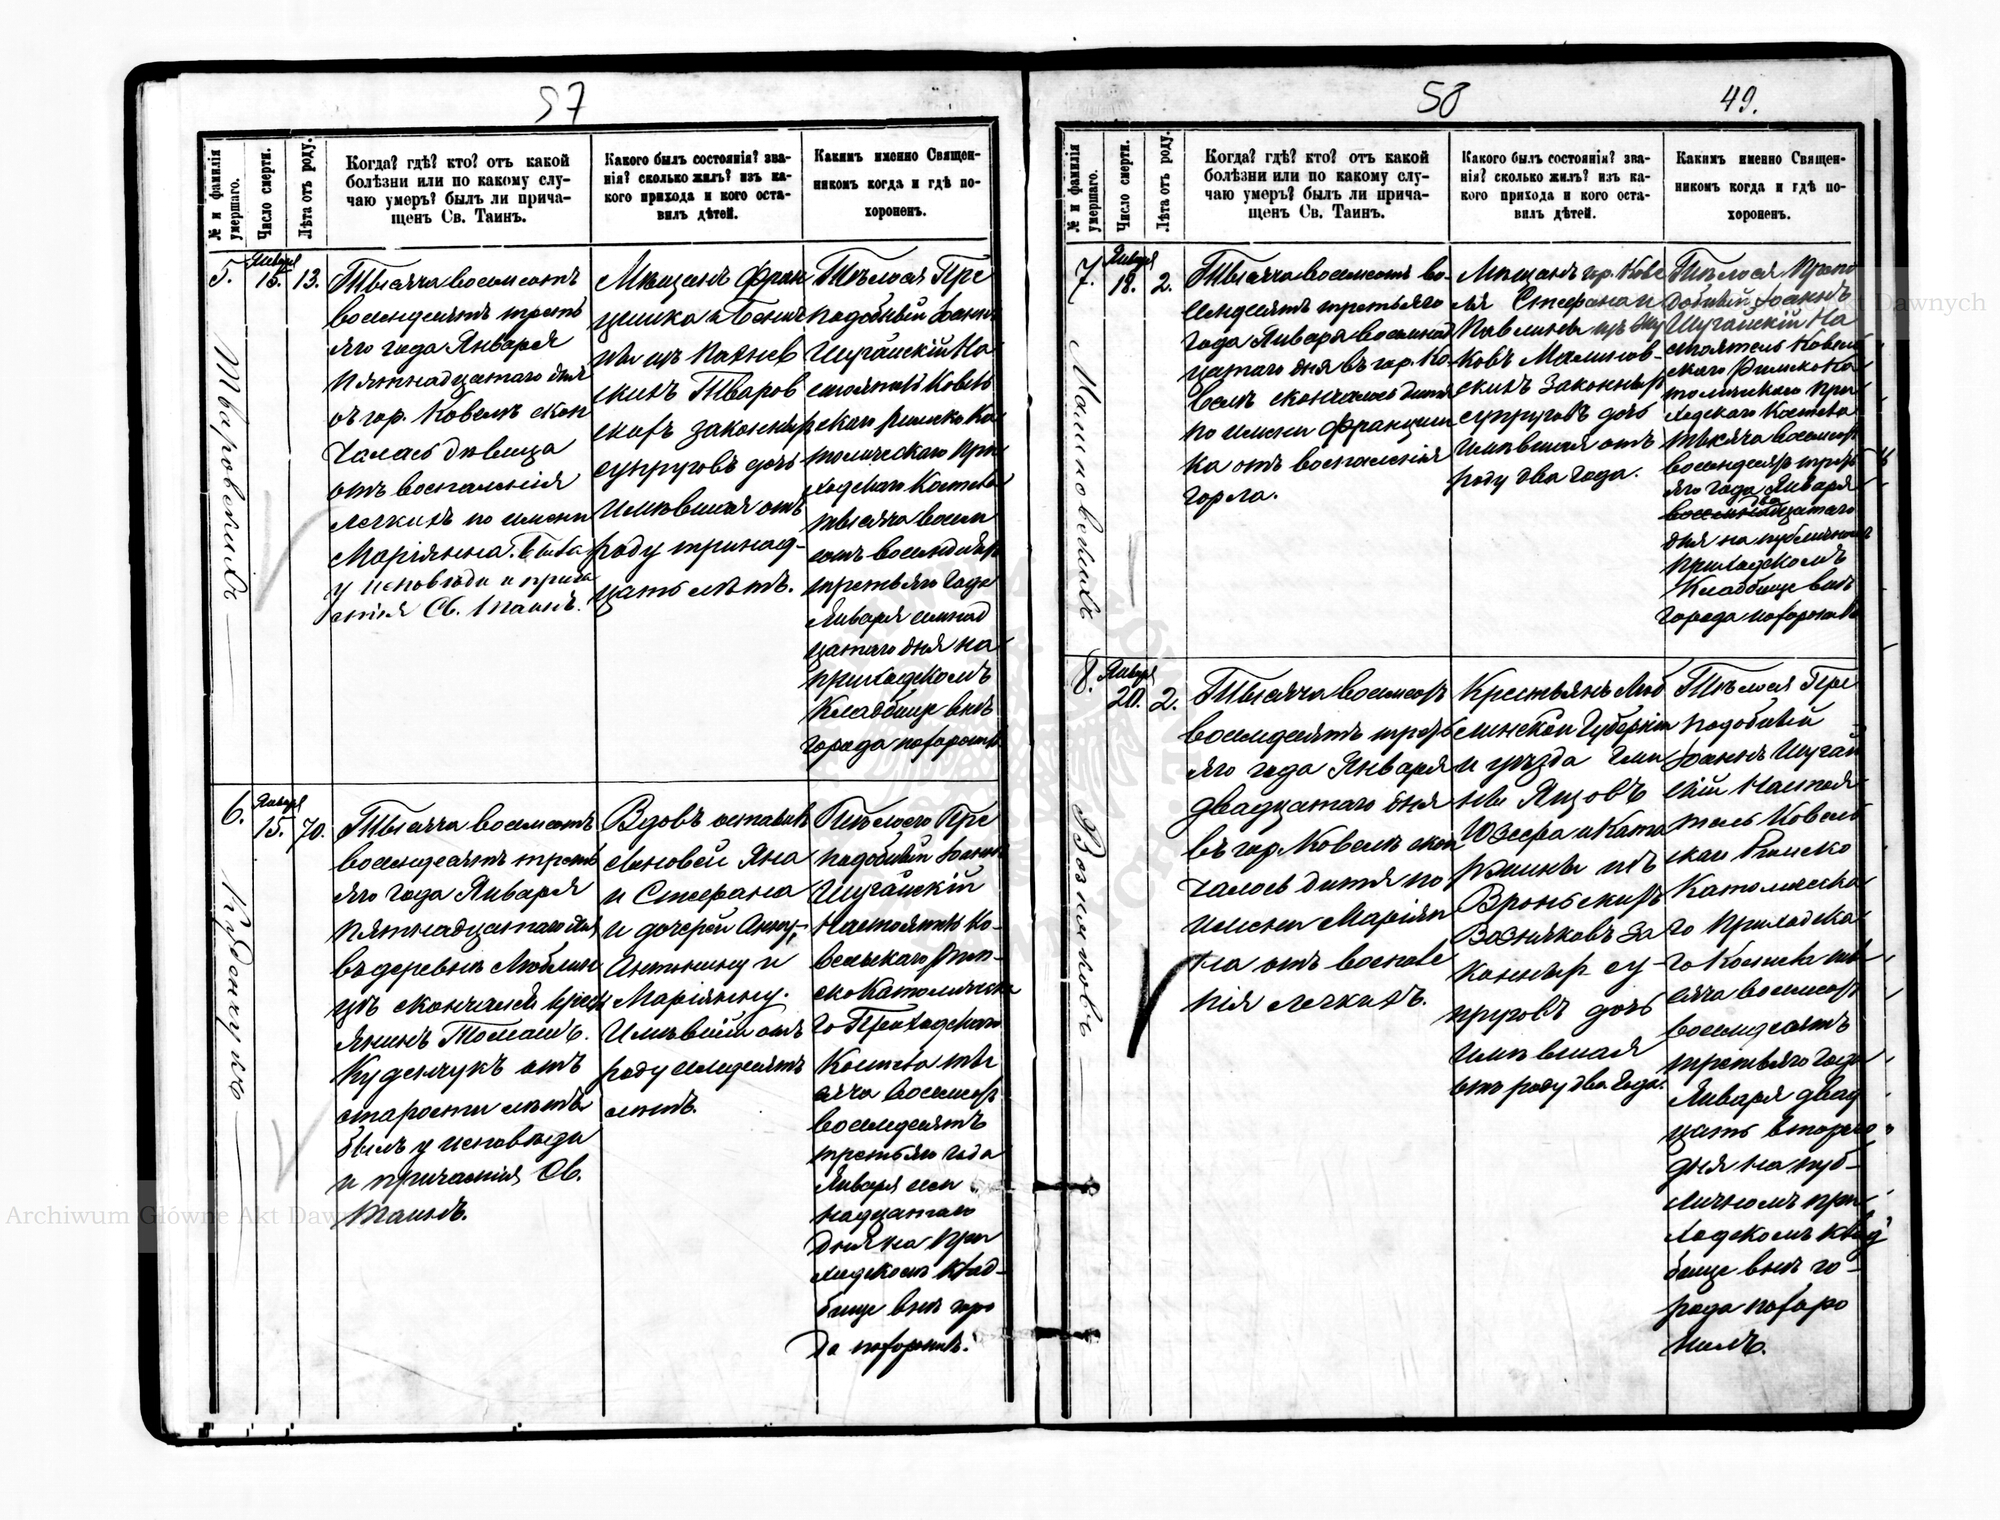 57
№ и фамилія умершаго.
Число смерти.
Лѣта отъ роду.
Когда? гдѣ? кто? отъ какой
болѣзни или по какому слу-
чаю умеръ? былъ ли прича-
щенъ Св. Таинъ.
Какого былъ состоянія? зва-
нія? сколько жилъ? изъ ка-
кого прихода и кого оста-
вилъ дѣтей.
Какимъ именно Священ-
никомъ когда и гдѣ по-
хороненъ.
5.
Тваровскихъ
Января
15.
13.
Тысяча восемсотъ
восемдесятъ треть
яго года Января
пятнадцатаго дня
въ гор. Ковелѣ скон
чалась дѣвица
отъ воспаленія
легкихъ по имени
Маріянна. Была
у исповѣди и прича
стія Св. Таинъ.
Мѣщанъ Фран
цишка и
изъ
скихъ Тваров
скихъ законныхъ
супруговъ дочь
имѣвшая отъ
роду тринад-
цать лѣтъ.
Тѣло ея Пре
подобный Іоаннъ
Шугайскій На
стоятель Ковель
скаго Римско Ка
толическаго При
ходскаго Костела
тысяча восем
сотъ восемдесятъ
третьяго года
Января семнад
цатаго дня на
приходскомъ
кладбище внѣ
города похоронилъ
6.
Января
15.
70.
Тысяча восемсотъ
восемдесятъ треть
яго года Января
пятнадцатаго дня
въ деревнѣ Люблин
цѣ скончался крест
янинъ Томашъ
отъ
старости лѣтъ
былъ у исповѣди
и причастія Св.
Таинъ.
Вдовъ оставилъ
сыновей Яна
и Стефана
и дочерей Анну,
Антонину и
Маріянну.
Имѣвшій отъ
роду семдесятъ
лѣтъ.
Тѣло его Пре
подобный Іоаннъ
Шугайскій
Настоятель Ко-
вельскаго Рим-
ско Католическа
го Приходскаго
Костела ты
сяча восемсотъ
восемдесятъ
третьяго года
Января сем
надцатаго
дня на При
ходскомъ клад-
бище внѣ горо
да похоронилъ.
58
49.
№ и фамилія умершаго.
Число смерти.
Лѣта отъ роду.
Когда? гдѣ? кто? отъ какой
болѣзни или по какому слу-
чаю умеръ? былъ ли прича-
щенъ Св. Таинъ.
Какого былъ состоянія? зва-
нія? сколько жилъ? изъ ка-
кого прихода и кого оста-
вилъ дѣтей.
Какимъ именно Священ-
никомъ когда и гдѣ по-
хороненъ.
7.
Малиновскихъ
Января
18.
2.
Тысяча восемсотъ во-
семдесятъ третьяго
года Января восемнад
цатаго дня въ гор. Ко-
велѣ скончалось дитя
по имени Францишка
отъ воспаленія
горла.
Мѣщанъ гор. Кове
ля Стефана и
Павлины изъ
Малинов-
скихъ законныхъ
супруговъ дочь
имѣвшая отъ
роду два года.
Тѣло ея Препо
добный Іоаннъ
Шугайскій На
стоятель Ковель
скаго Римско Ка
толическаго При
ходскаго Костела
тысяча восемсотъ
восемдесятъ треть
яго года Января
двадцатаго
дня на публичномъ
приходскомъ
кладбище внѣ
города похоронилъ
8.
Возняковъ
Января
20.
2.
Тысяча восемсотъ
восемдесятъ треть
яго года Января
двадцатаго дня
въ гор. Ковелѣ скон
чалось дитя по
имени Маріян
на отъ воспале
нія легкихъ.
Крестьянъ Люб
линской Губерніи
и уѣзда гми
ны
Юзефа и Ката
ржины изъ
Вроньскихъ
Возняковъ за
конныхъ су-
пруговъ дочь
имѣвшая
отъ роду два года.
Тѣло ея Пре
подобный
Іоаннъ Шугай
скій Настоя-
тель Ковель
скаго Римско
Католическа
го Приходска
го Костела ты
сяча восемсотъ
восемдесятъ
третьяго года
Января двад
цать втораго
дня на пуб-
личномъ при
ходскомъ клад
бище внѣ го-
рода похоро
нилъ.
Archiwum Główne Akt Dawnych